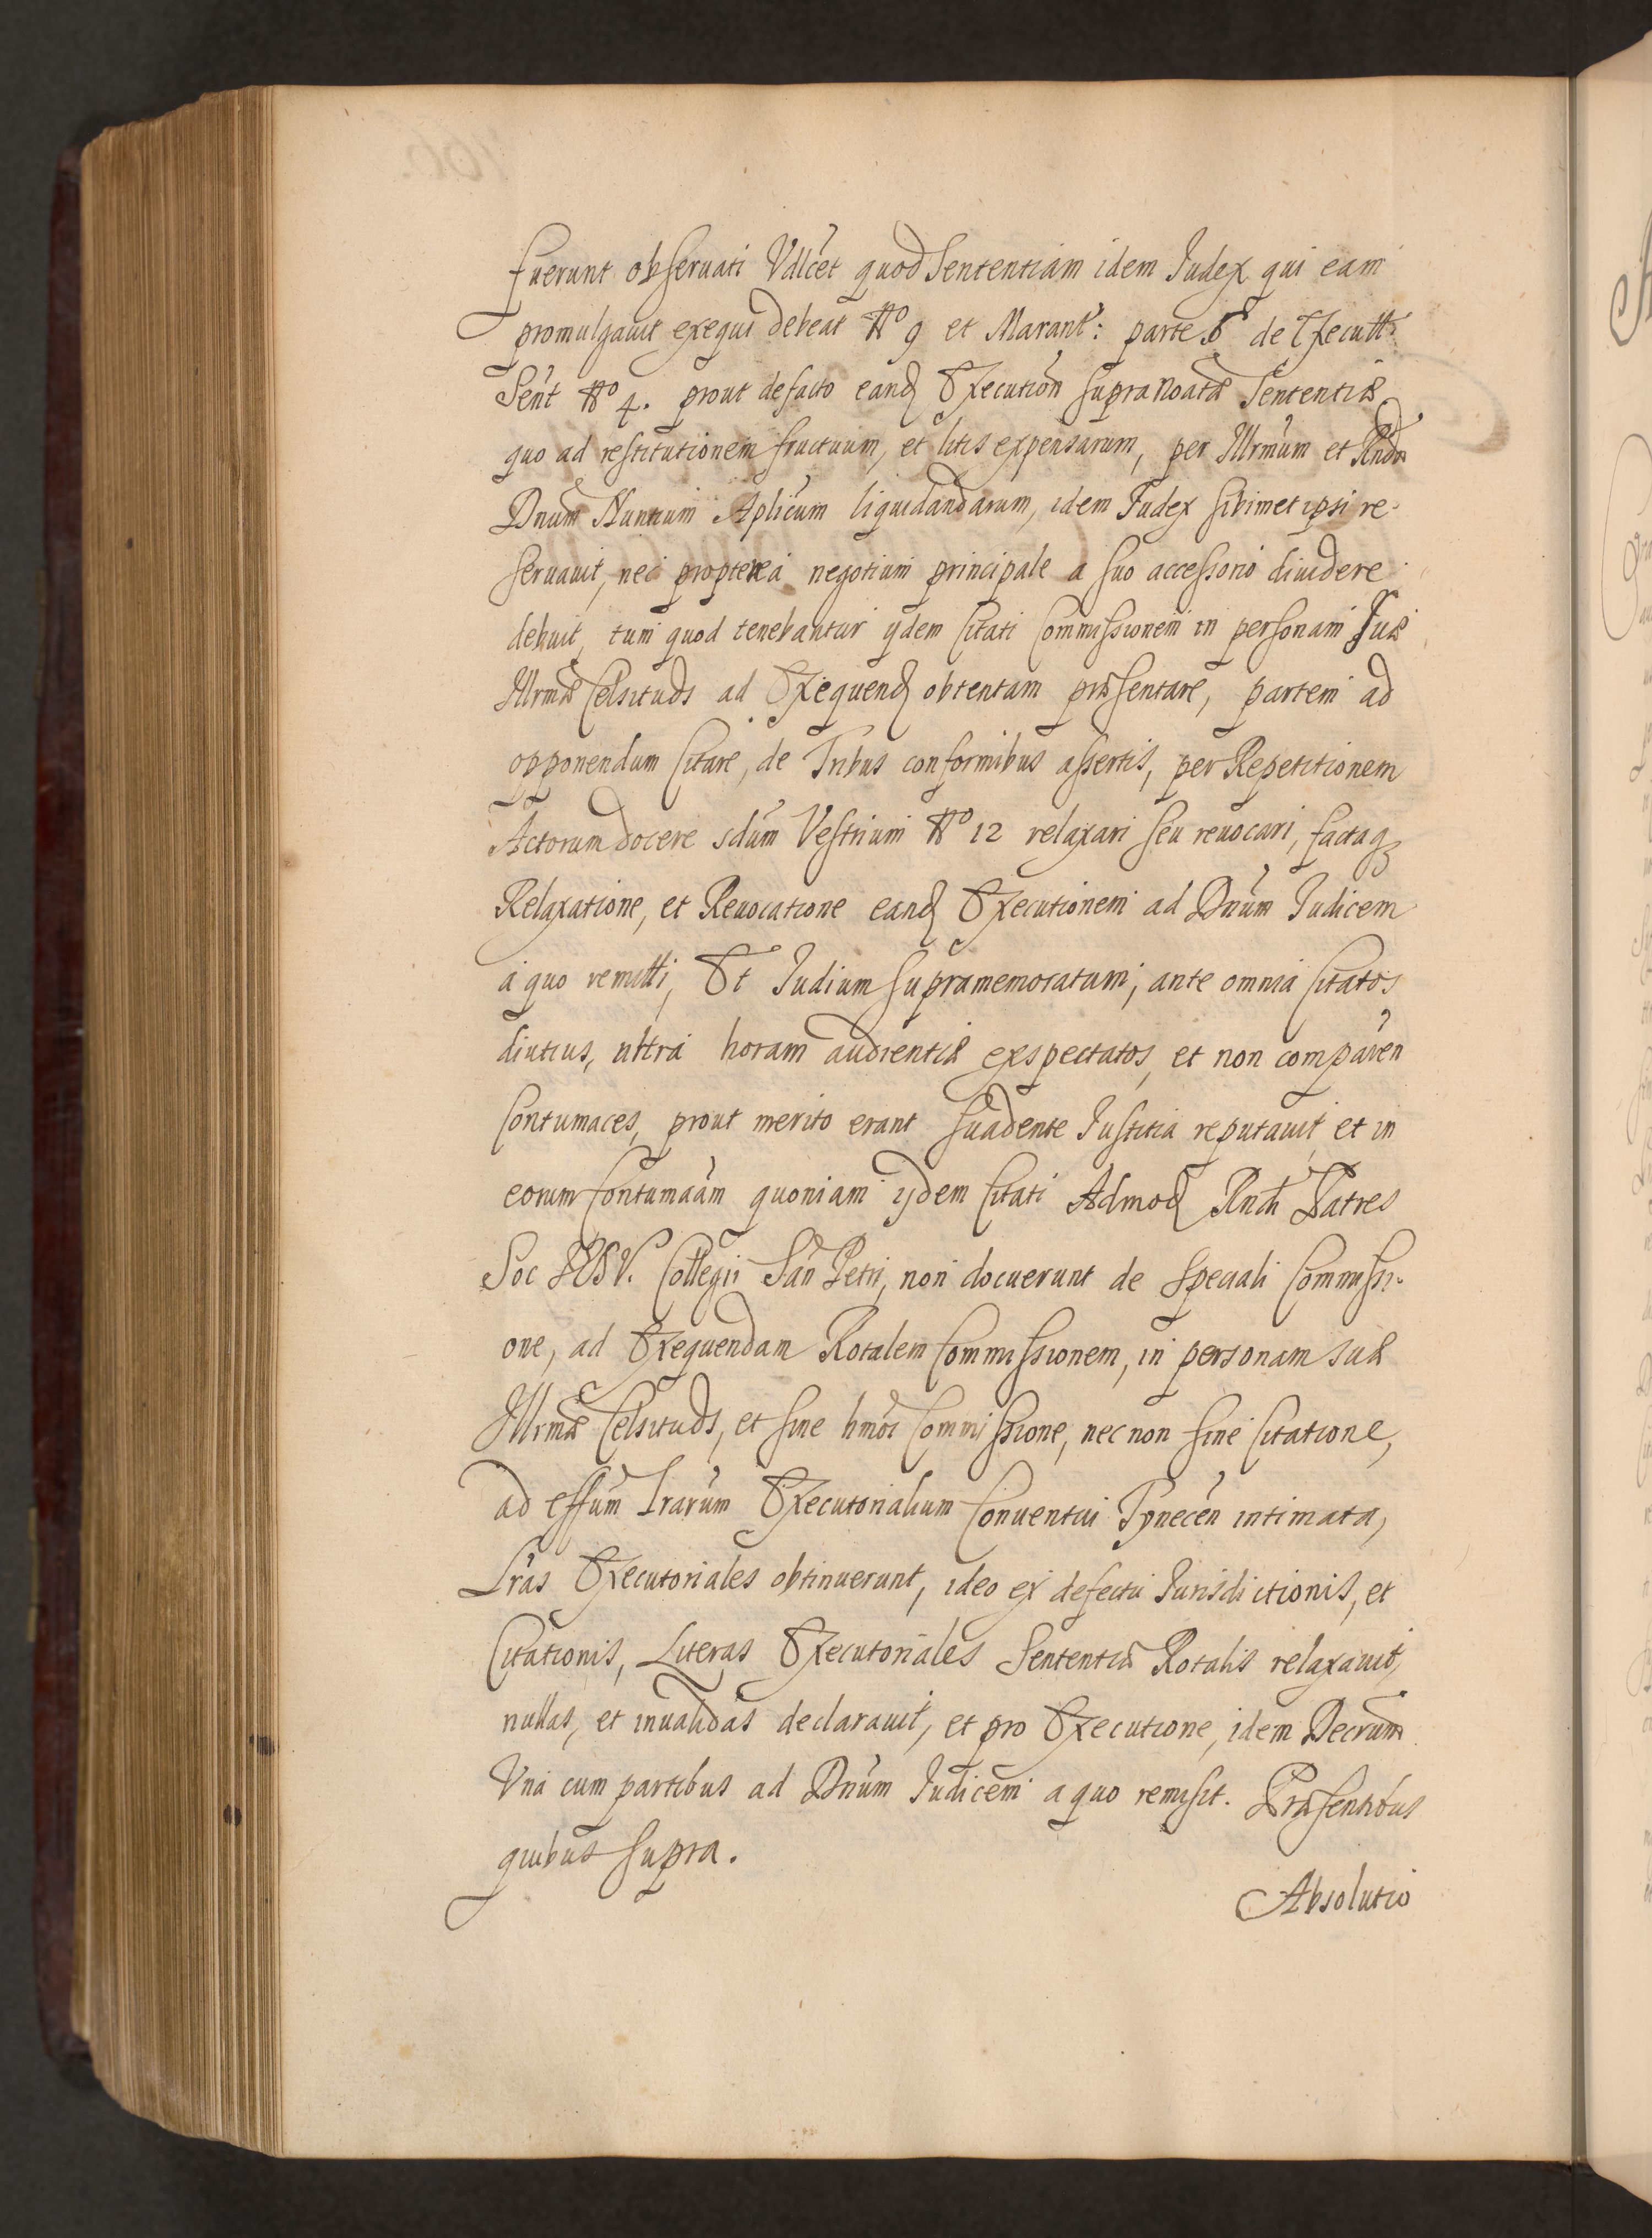 fuerunt obseruati Vdlcet quod Sententiam idem Iudex qui eam
promulgauit exequi debeat No 9 et Marant: parte 6 de Executt:
Sent No 4. prout de facto eand Execution supranoatæ Sententiæ
quo ad restitutionem fructuum, et litis expensarum, per Illrmum et Rndm
Dnum Nuntium Aplicum liquidandarum, idem Iudex sibimet ipsi re-
seruauit, nec propterea negotium principale a suo accessorio diuidere
debuit, tum quod tenebantur ijdem Citati Commissionem in personam Suæ
Illrmæ Celsituds ad Exequend obtentam præsentare, partem ad
opponendum Citare, de Tribus conformibus assertis, per Repetitionem
Actorum docere sdum Vestrium No 12 relaxari seu reuocari, factaq
Relaxatione, et Reuocatione eand Executionem ad Dnum Iudicem
a quo remitti, Et Iudium supramemoratum, ante omnia Citatos
diutius, ultra horam audientiæ exspectatos, et non comparen
Contumaces, prout merito erant suadente Iustitia reputauit, et in
eorum Contumaam quoniam ijdem Citati Admod Rndi Patres
Soc IESV. Collegii San Petri, non docuerunt de Speciali Commissi-
one, ad Exequendam Rotalem Commissionem, in personam suæ
Illrmæ Celsituds, et sine hmoi Commissione, nec non sine Citatione,
ad effum Lrarum Executorialium Conuentui Tynecen intimata,
Lras Executoriales obtinuerunt, ideo ex defectu Iurisdictionis, et
Citationis, Literas Executoriales Sententiæ Rotalis relaxauit,
nullas, et inualidas declarauit, et pro Executione, idem Decrum
Vna cum partibus ad Dnum Iudicem a quo remisit. Præsentibus
quibus supra.
Absolutio